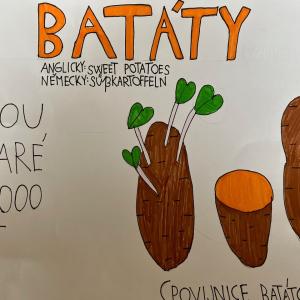 BATÁTY
ANGLICKY: SWEET POTATOES
NĚMECKY: SÜẞKARTOFFELN
OU,
ARÉ
000
POVIJNICE BATÁT